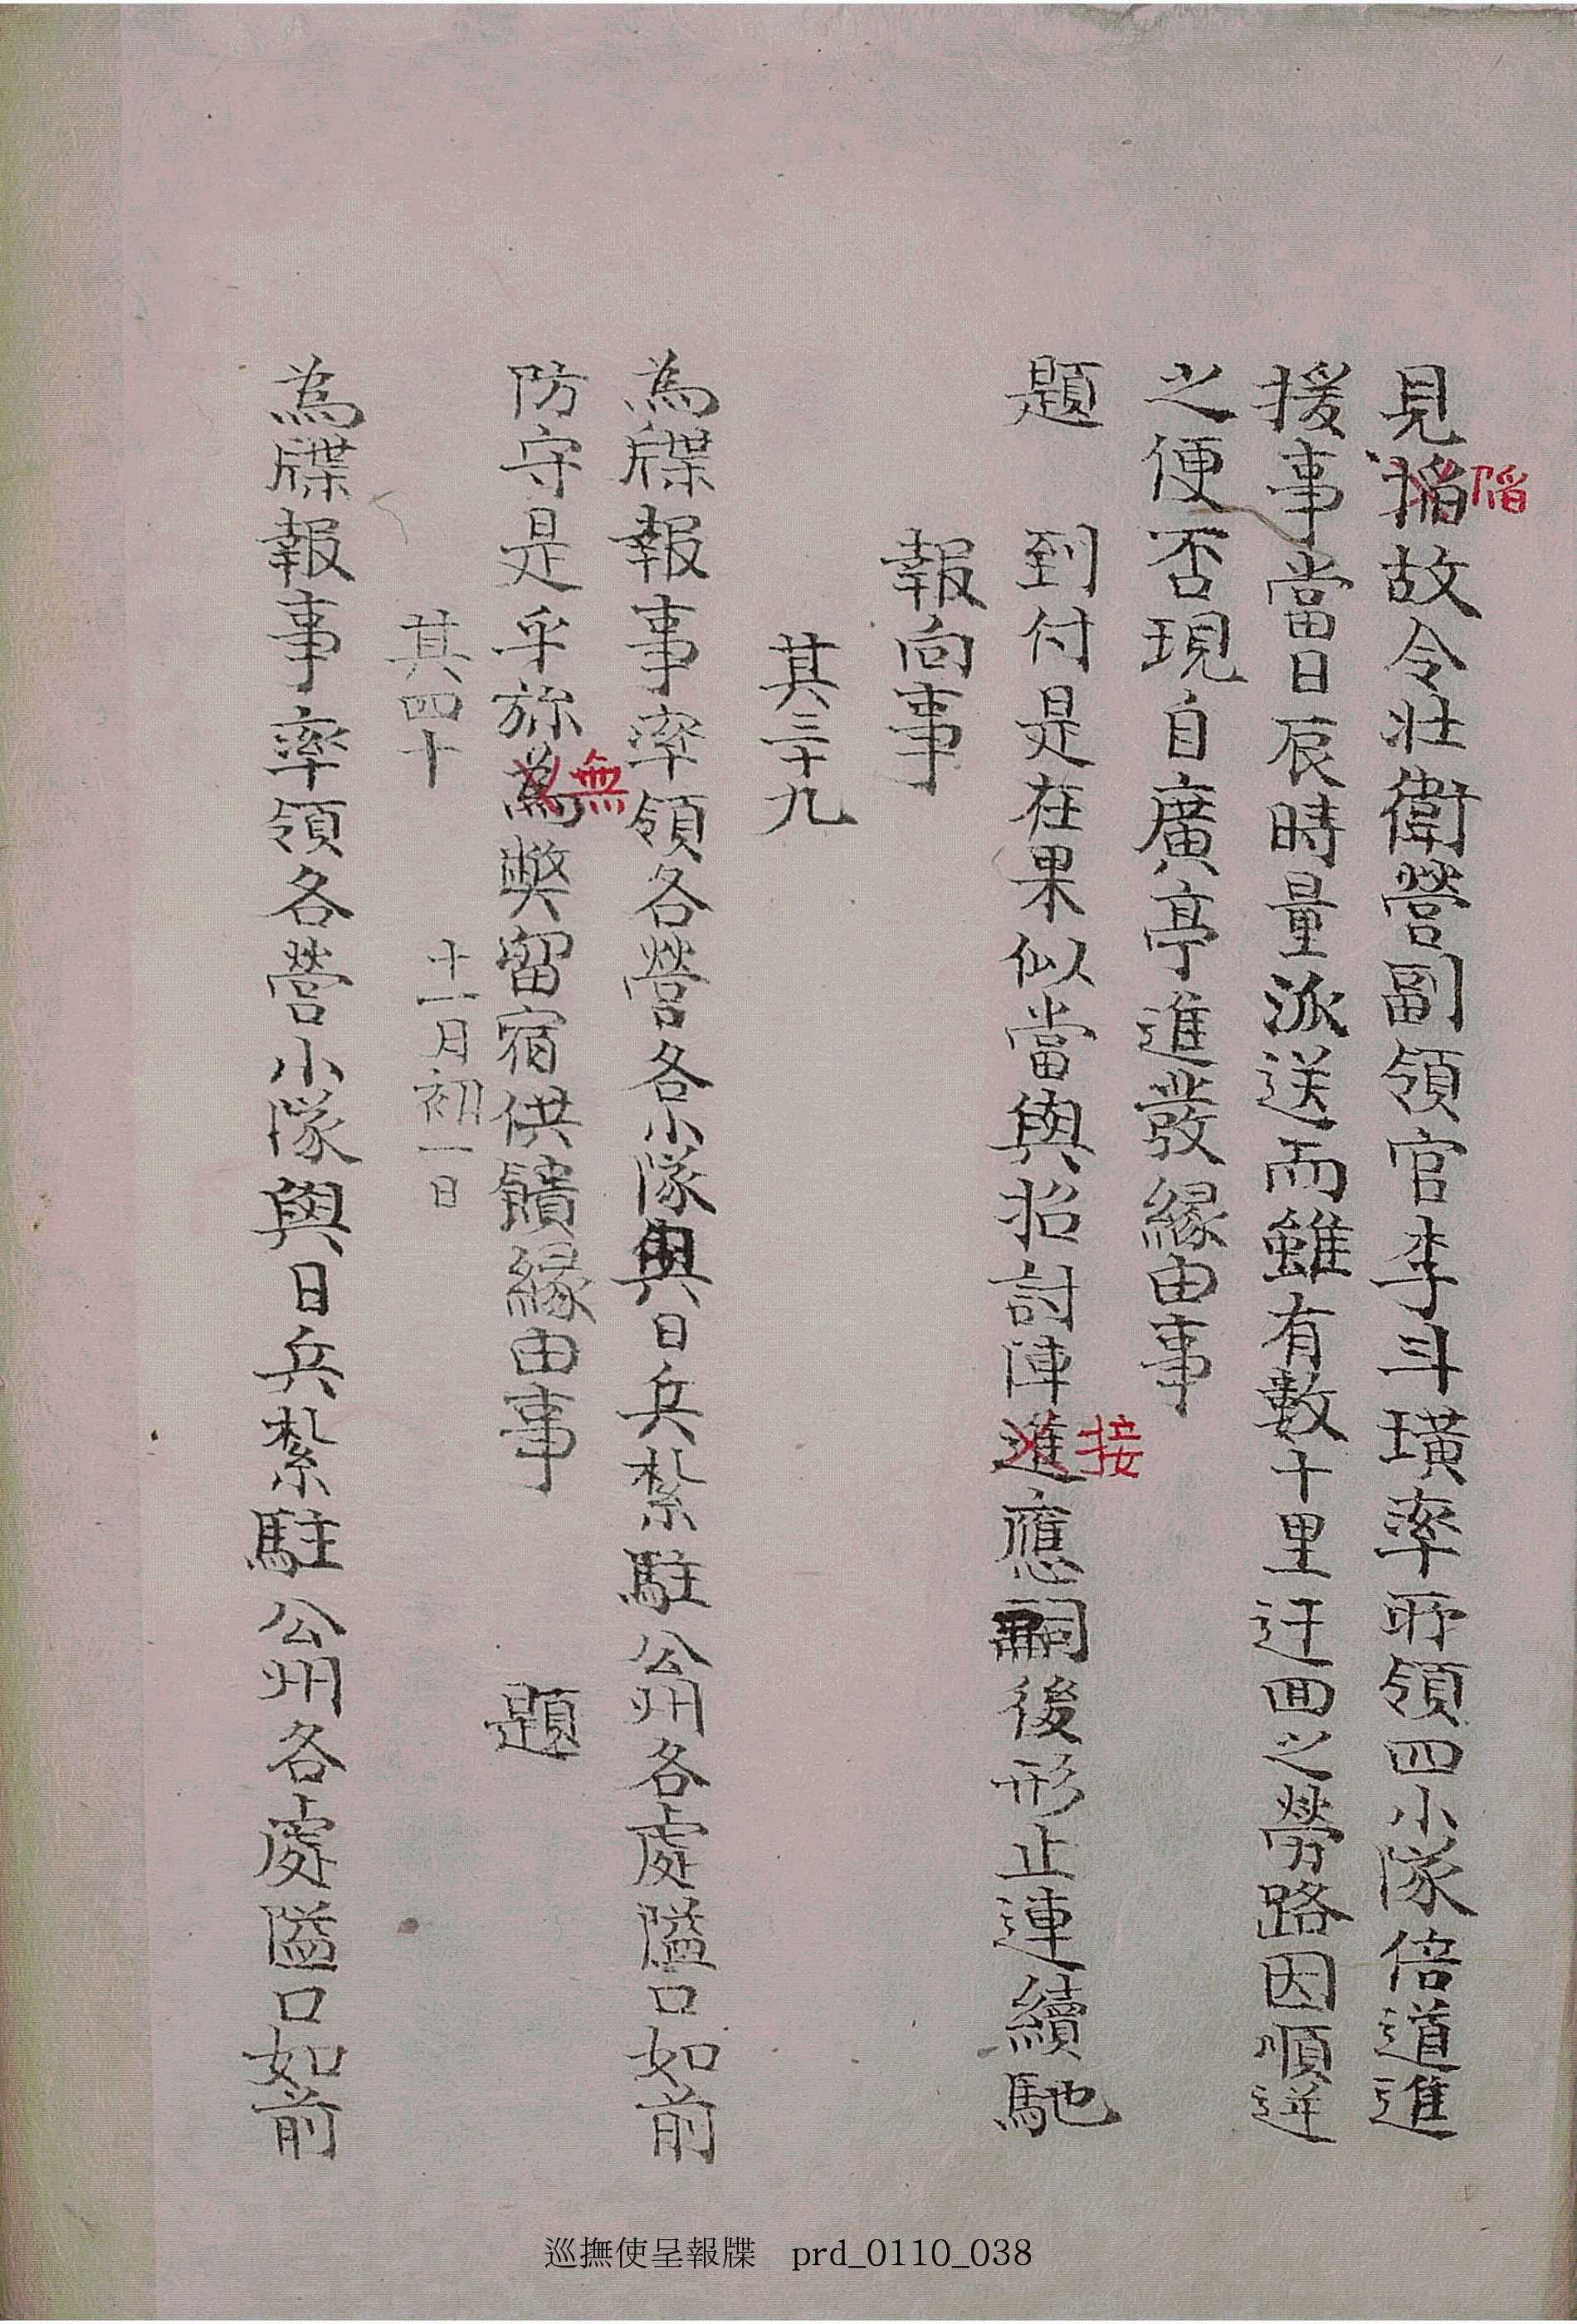 見掐故令壯衛營副領官李斗璜率所領四小隊倍道進
陷
援事當日辰時量派送而雖有數十里迂回之勞路因順逆
之便否現自廣亭進發緣由事
題 到付是在果似當與招討陣進應詗後形止連續馳
接
報向事
其三十九
為牒報事率領各營各小隊與日兵紮駐公州各處隘口如前
防守是乎旀為獘留宿供饋緣由事 題
無
其四十 十一月初一日
為牒報事率領各營小隊與日兵紮駐公州各處隘口如前
巡撫使呈報牒 prd_0110_038